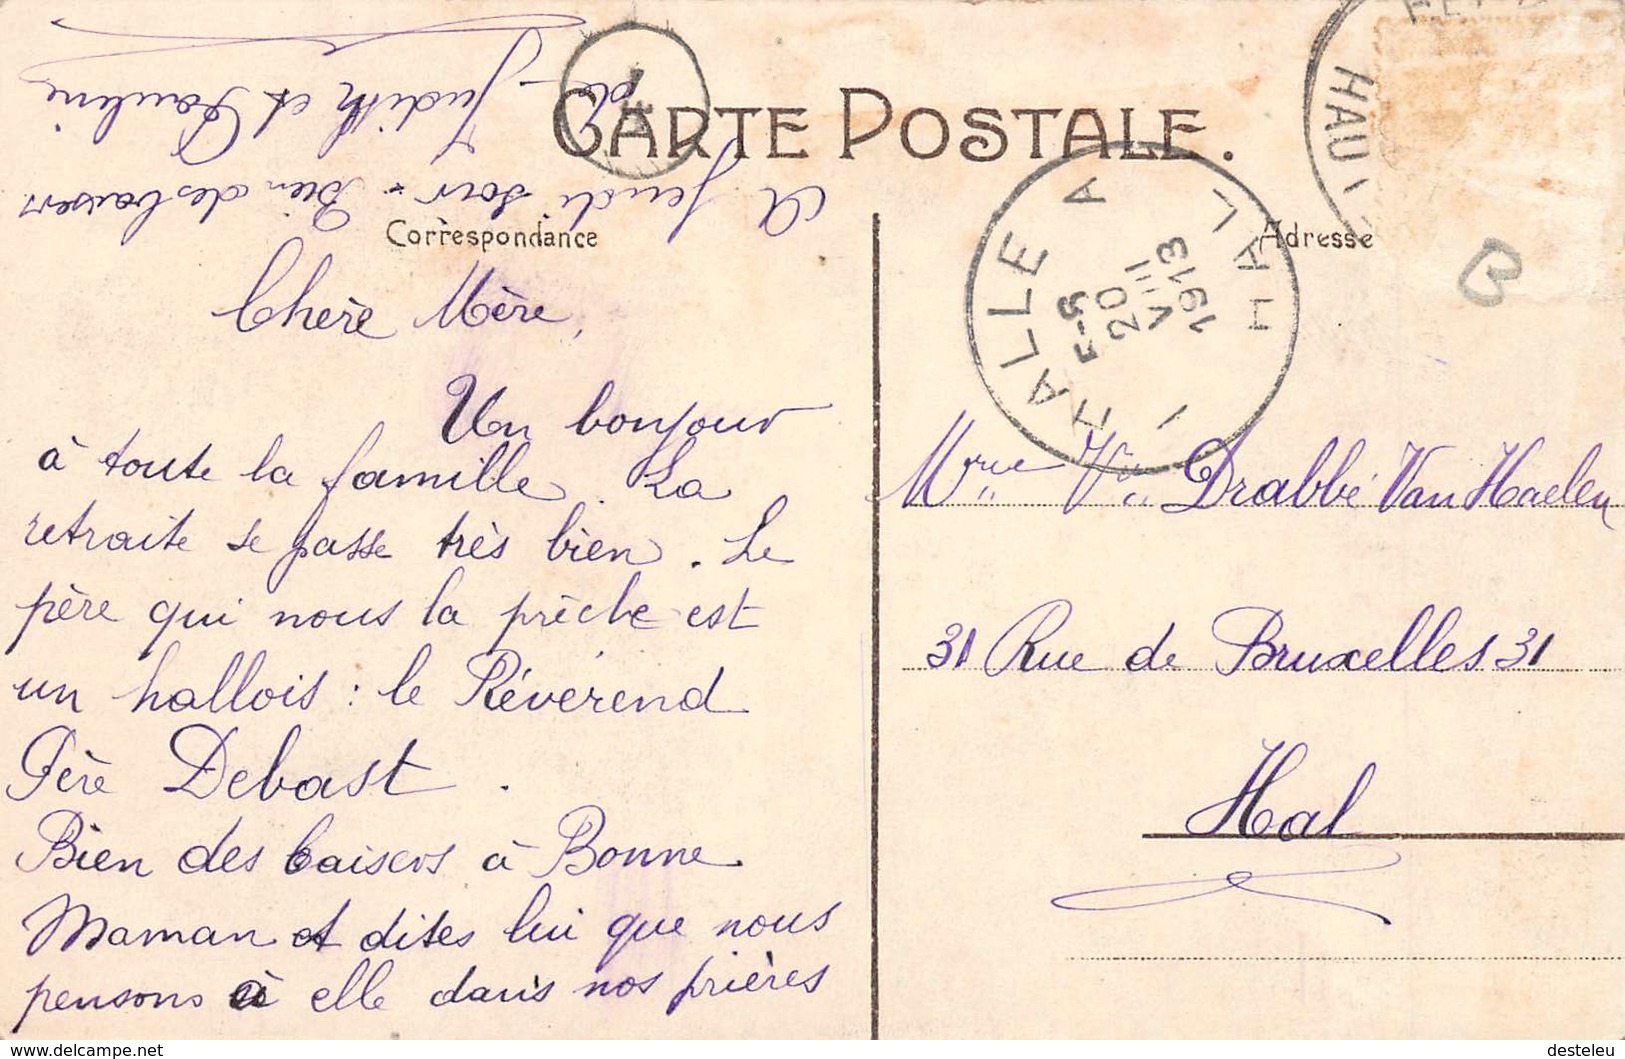 CARTE POSTALE.
Correspondance
Adresse
Chère Mère,
Un bonjour
à toute la famille. La
retraite se passe très bien. Le
père qui nous la prêche est
un hallois : le Révérend
Père Debast.
Bien des baisers à Bonne
Maman et dites lui que nous
pensons à elle dans nos prières
A jeudi soir. Bien des baisers
de Judith et Pauline
Mme Vve Drabbé Van Haelen
31 Rue de Bruxelles 31
Hal
HALLE A
20
VIII
1913
1 HAL
HAU
B
© delcampe.net
desteleu